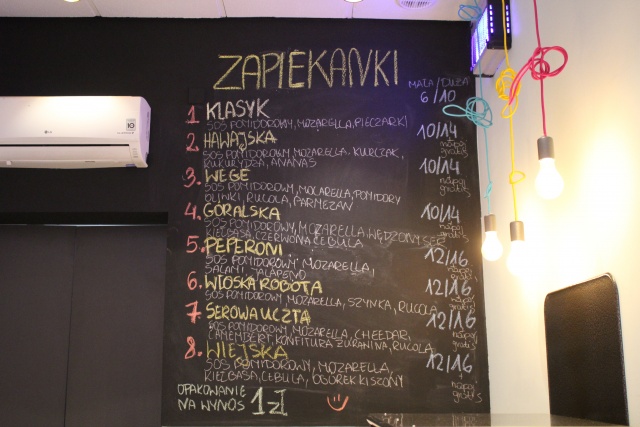 ZAPIEKANKI
MAŁA/DUŻA
6/10
1. KLASYK
SOS POMIDOROWY, MOZARELLA, PIECZARKI
2. HAWAJSKA 10/14
napój gratis
SOS POMIDOROWY, MOZARELLA, KURCZAK,
KUKURYDZA, ANANAS
3. WEGE 10/14
napój gratis
SOS POMIDOROWY, MOCARELLA, POMIDORY
OLIWKI, RUCOLA, PARMEZAN
4. GÓRALSKA 10/14
napój gratis
SOS POMIDOROWY, MOZARELLA, WĘDZONY SER,
KIEŁBASA, CZERWONA CEBULA
5. PEPERONI 12/16
napój gratis
SOS POMIDOROWY MOZARELLA,
SALAMI, JALAPENO
6. WŁOSKA ROBOTA 12/16
napój gratis
SOS POMIDOROWY, MOZARELLA, SZYNKA, RUCOLA
7. SEROWA UCZTA 12/16
napój gratis
SOS POMIDOROWY, MOZARELLA, CHEEDAR,
CAMEMBERT, KONFITURA ŻURAWINA, RUCOLA
8. WIEJSKA 12/16
napój gratis
SOS POMIDOROWY, MOZARELLA,
KIEŁBASA, CEBULA, OGÓREK KISZONY
OPAKOWANIE
NA WYNOS 1 zł
LG